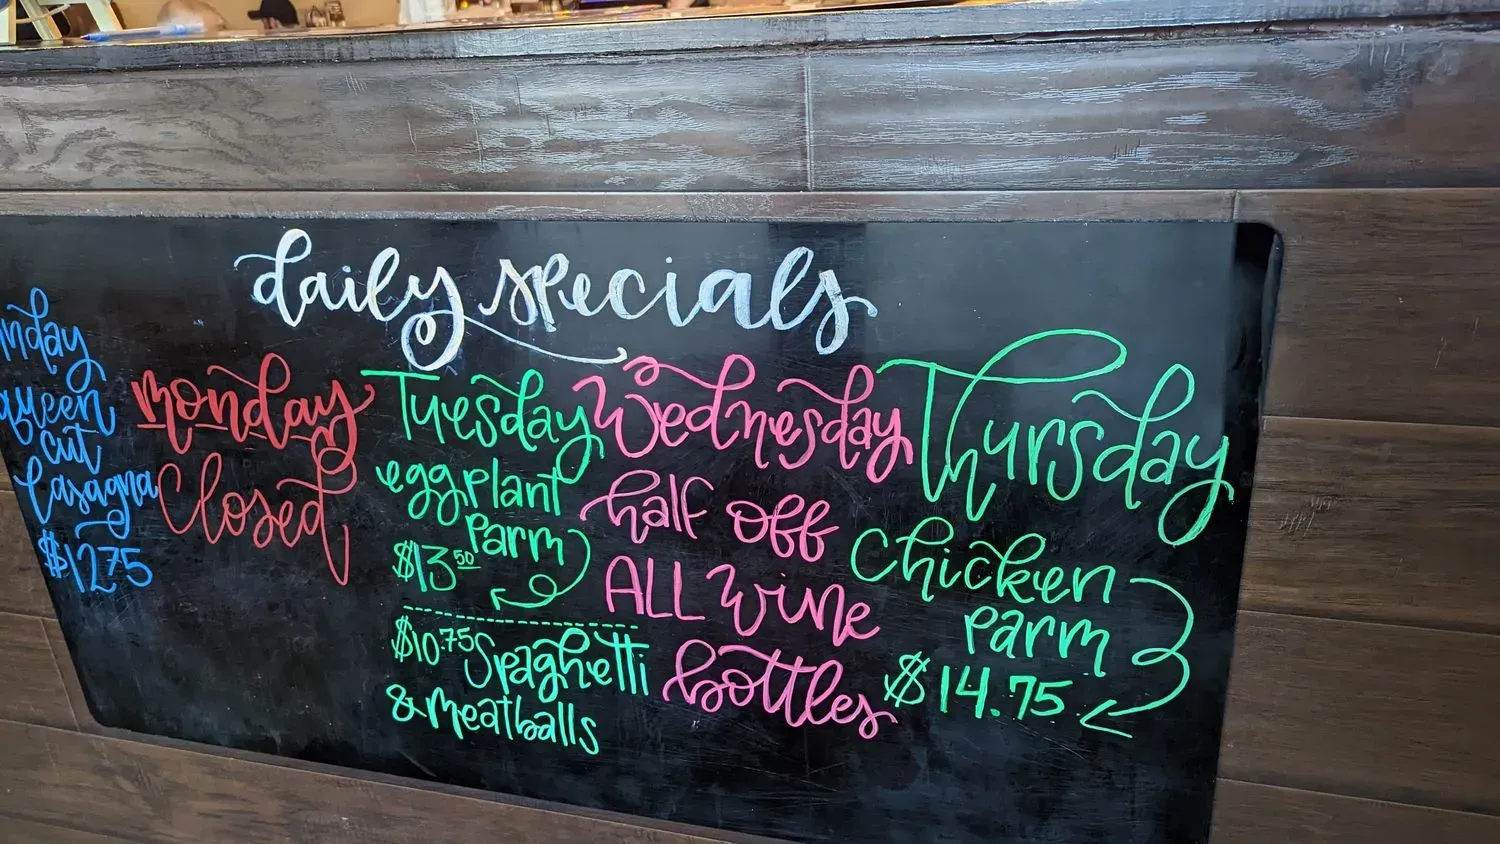 daily specials
nday
queen
cut
Lasagna
$12.75
monday
Closed
Tuesday
eggplant
Parm
$13.50
$10.75 Spaghetti
& Meatballs
Wednesday
half off
ALL Wine
bottles
Thursday
Chicken
Parm
$14.75